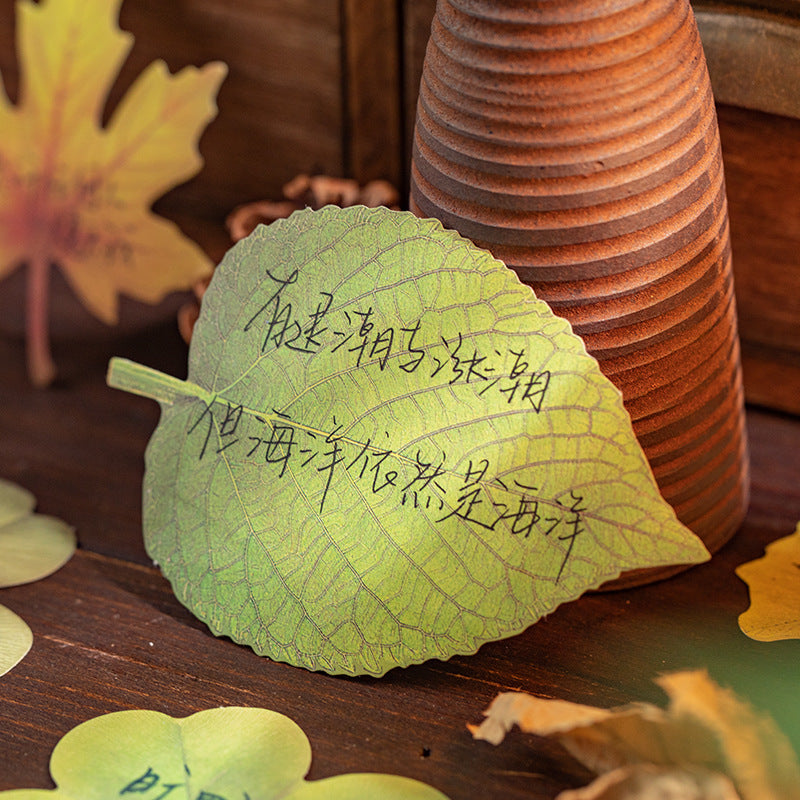 有退潮与涨潮
但海洋依然是海洋